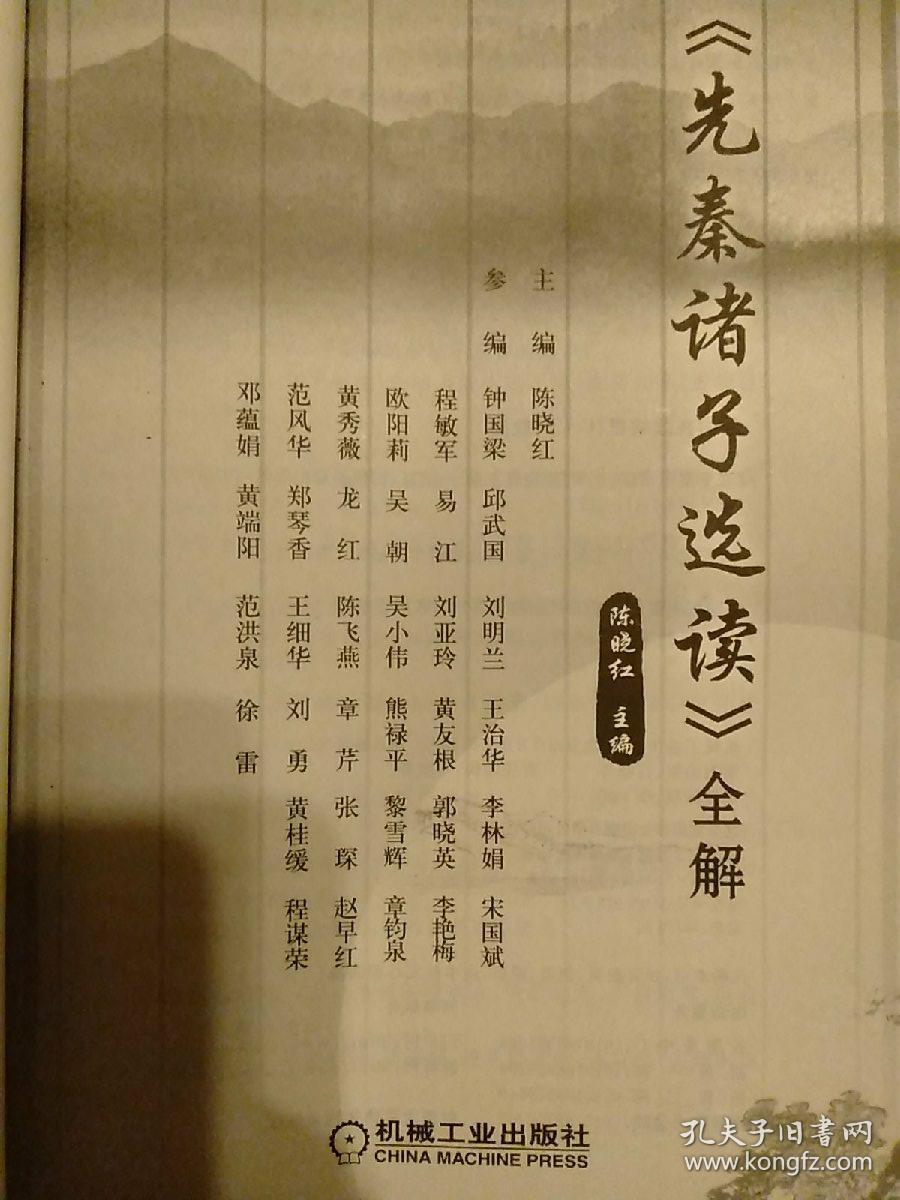 《先秦诸子选读》全解
陈晓红 主编
主编 陈晓红
参编 钟国梁 邱武国 刘明兰 王治华 李林娟 宋国斌
程敏军 易江 刘亚玲 黄友根 郭晓英 李艳梅
欧阳莉 吴朝 吴小伟 熊禄平 黎雪辉 章钧泉
黄秀薇 龙红 陈飞燕 章芹 张琛 赵早红
范风华 郑琴香 王细华 刘勇 黄桂缓 程谋荣
邓蕴娟 黄端阳 范洪泉 徐雷
机械工业出版社
CHINA MACHINE PRESS
孔夫子旧书网
www.kongfz.com